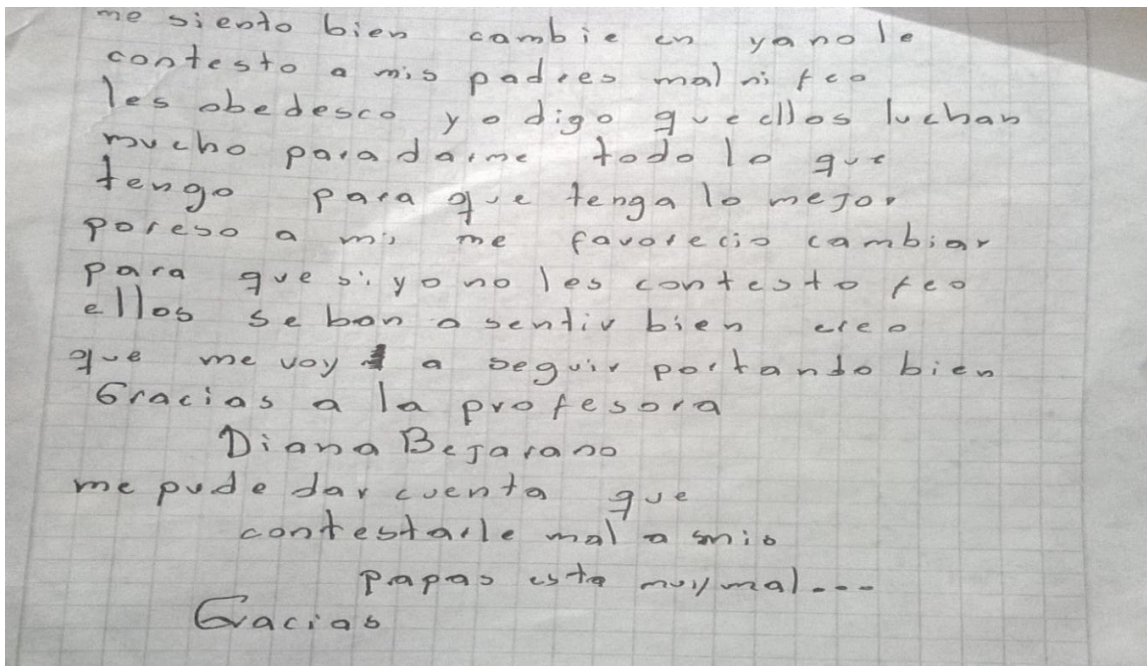 me siento bien cambie en yano le
contesto a mis padres mal ni feo
les obedesco yo digo que ellos luchan
mucho para darme todo lo que
tengo para que tenga lo mejor
poreso a mi me favorecio cambiar
para que si yo no les contesto feo
ellos se ban a sentir bien creo
que me voy a seguir portando bien
Gracias a la profesora
Diana Bejarano
me pude dar cuenta que
contestarle mal a mis
papas esta muy mal...
Gracias